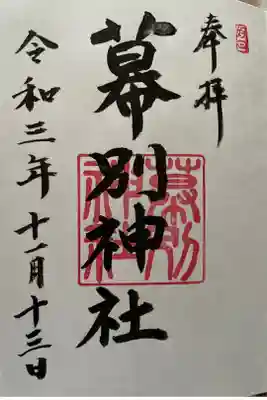 奉拝
幕別神社
令和三年十一月十三日